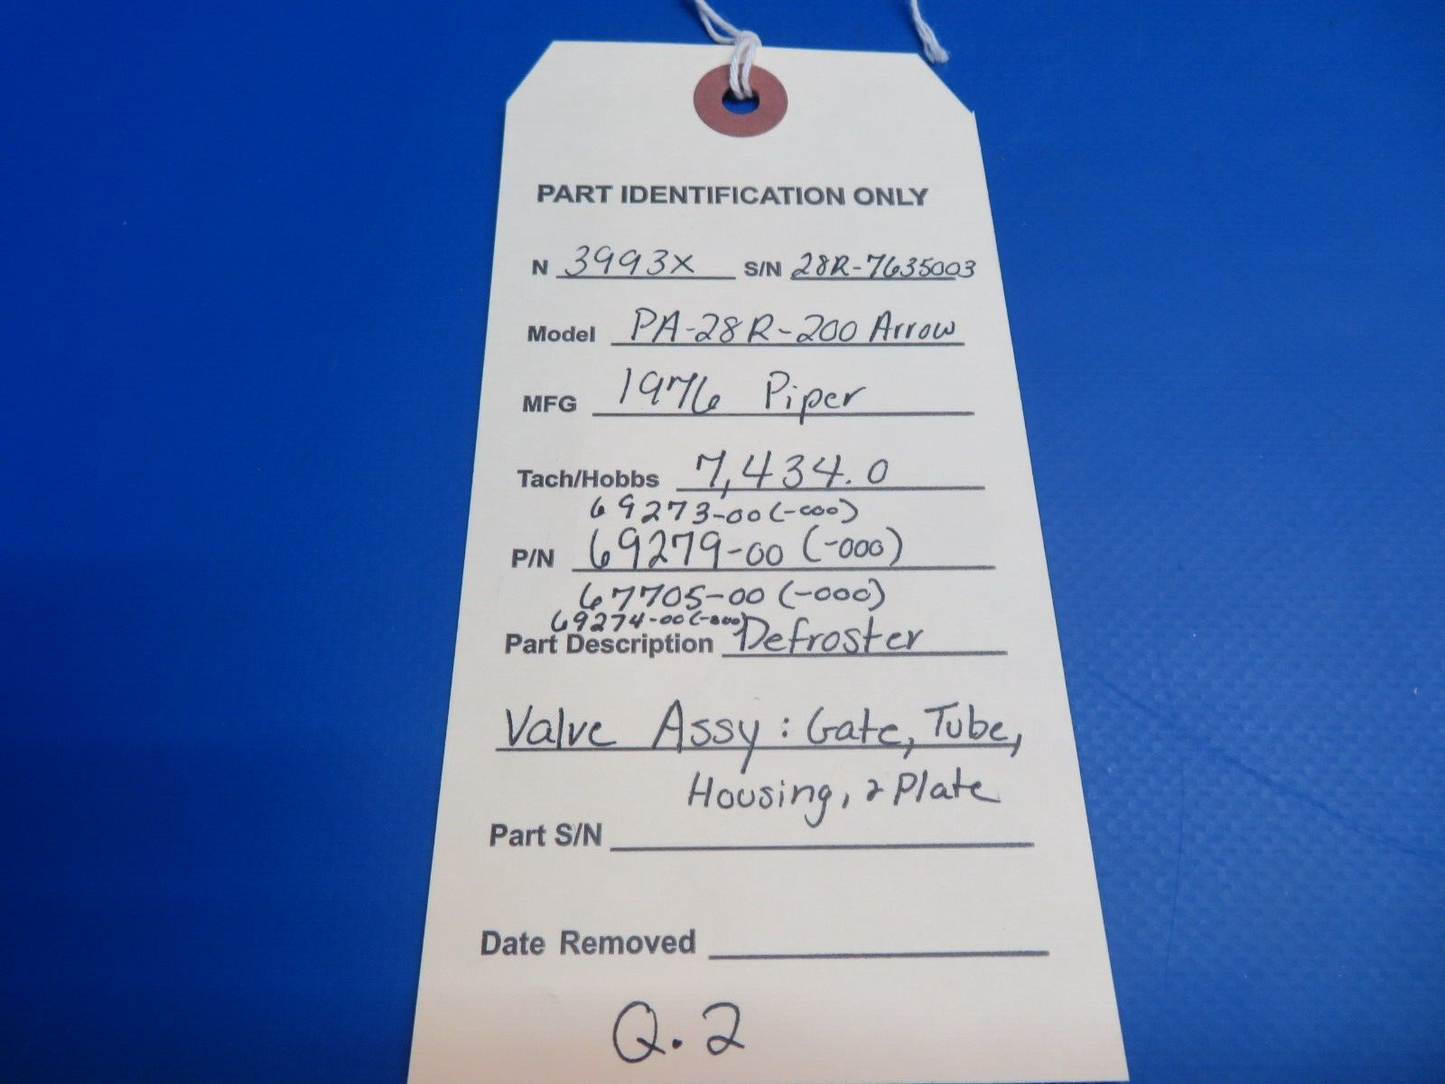 PART IDENTIFICATION ONLY
N 3993X S/N 28R-7635003
Model PA-28R-200 Arrow
MFG 1976 Piper
Tach/Hobbs 7,434.0
69273-00 (-000)
P/N 69279-00 (-000)
67705-00 (-000)
69274-00 (-000)
Part Description Defroster
Valve Assy: Gate, Tube,
Housing, & Plate
Part S/N
Date Removed
Q.2